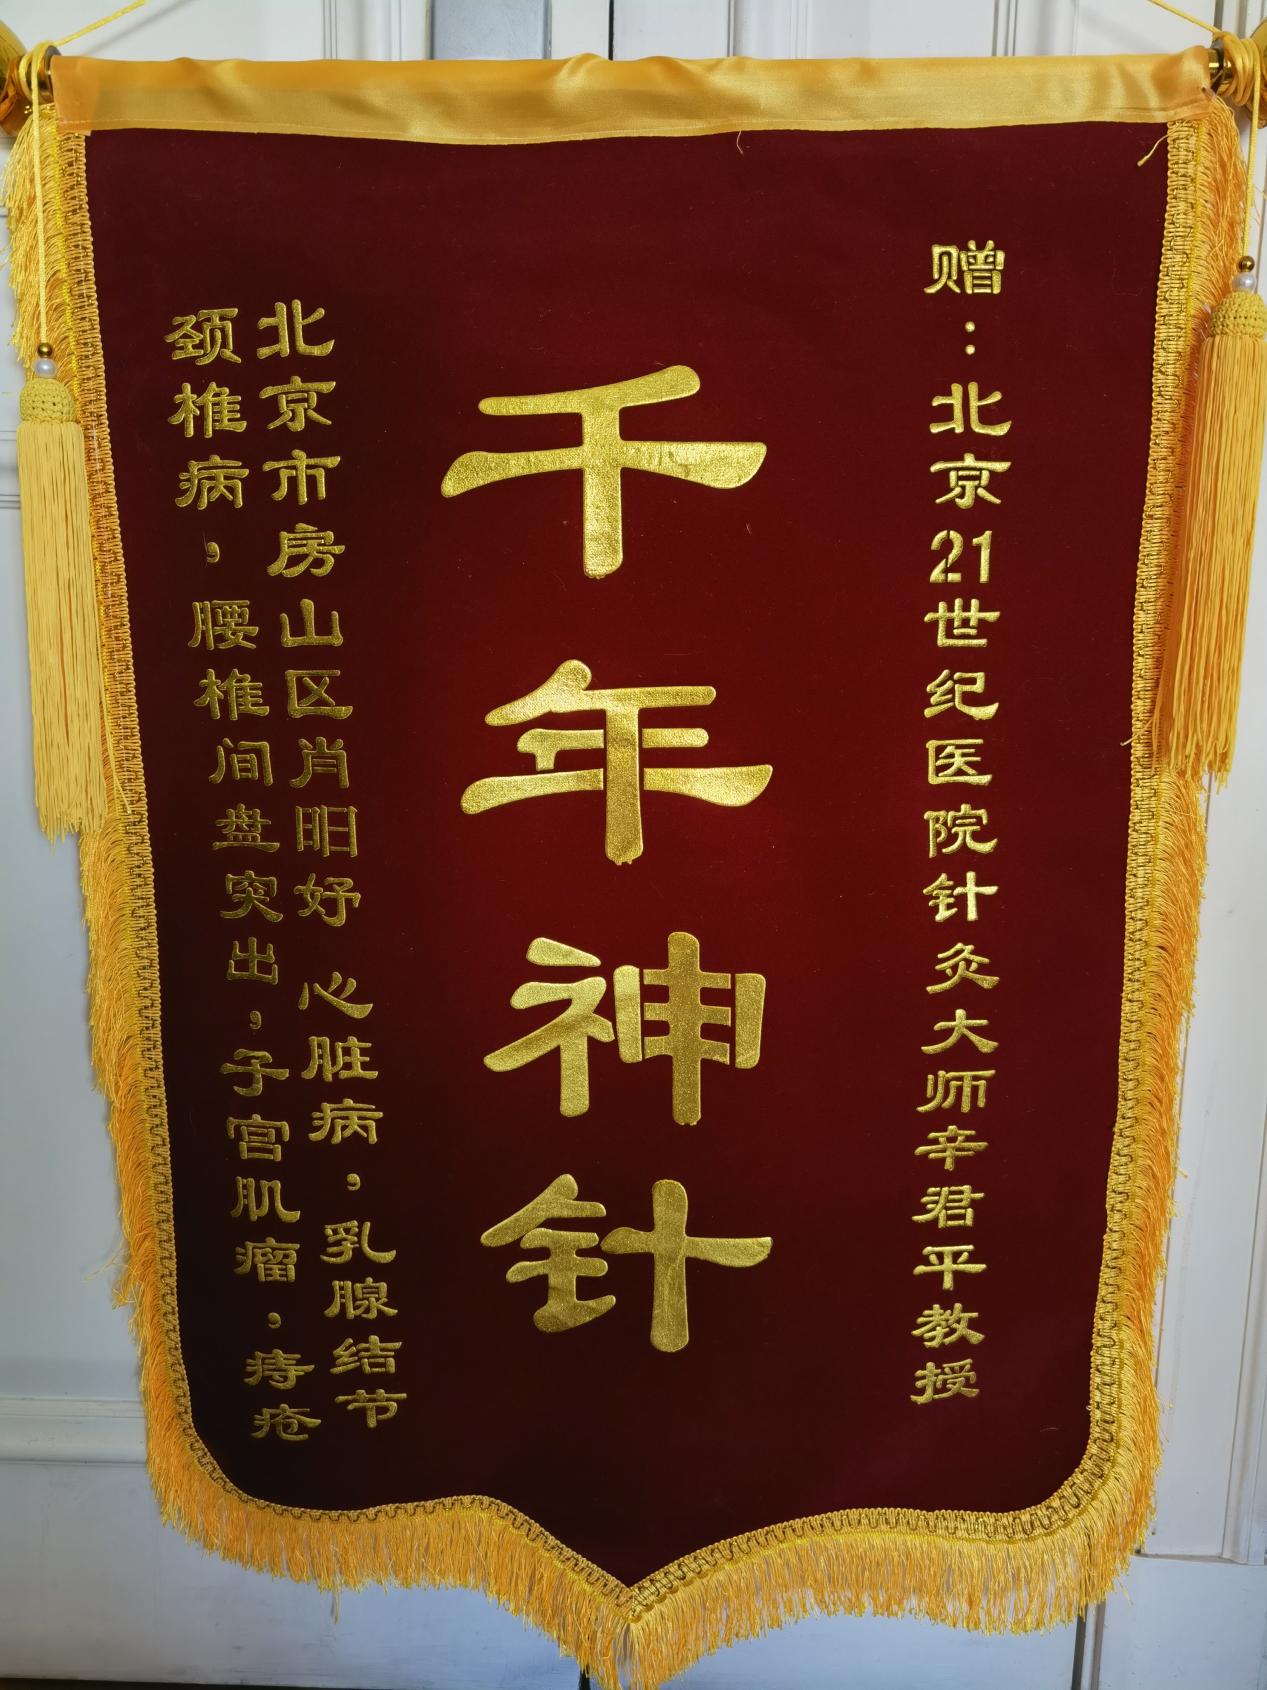 赠：北京21世纪医院针灸大师辛君平教授
千年神针
北京市房山区肖明好 心脏病，乳腺结节
颈椎病，腰椎间盘突出，子宫肌瘤，痔疮